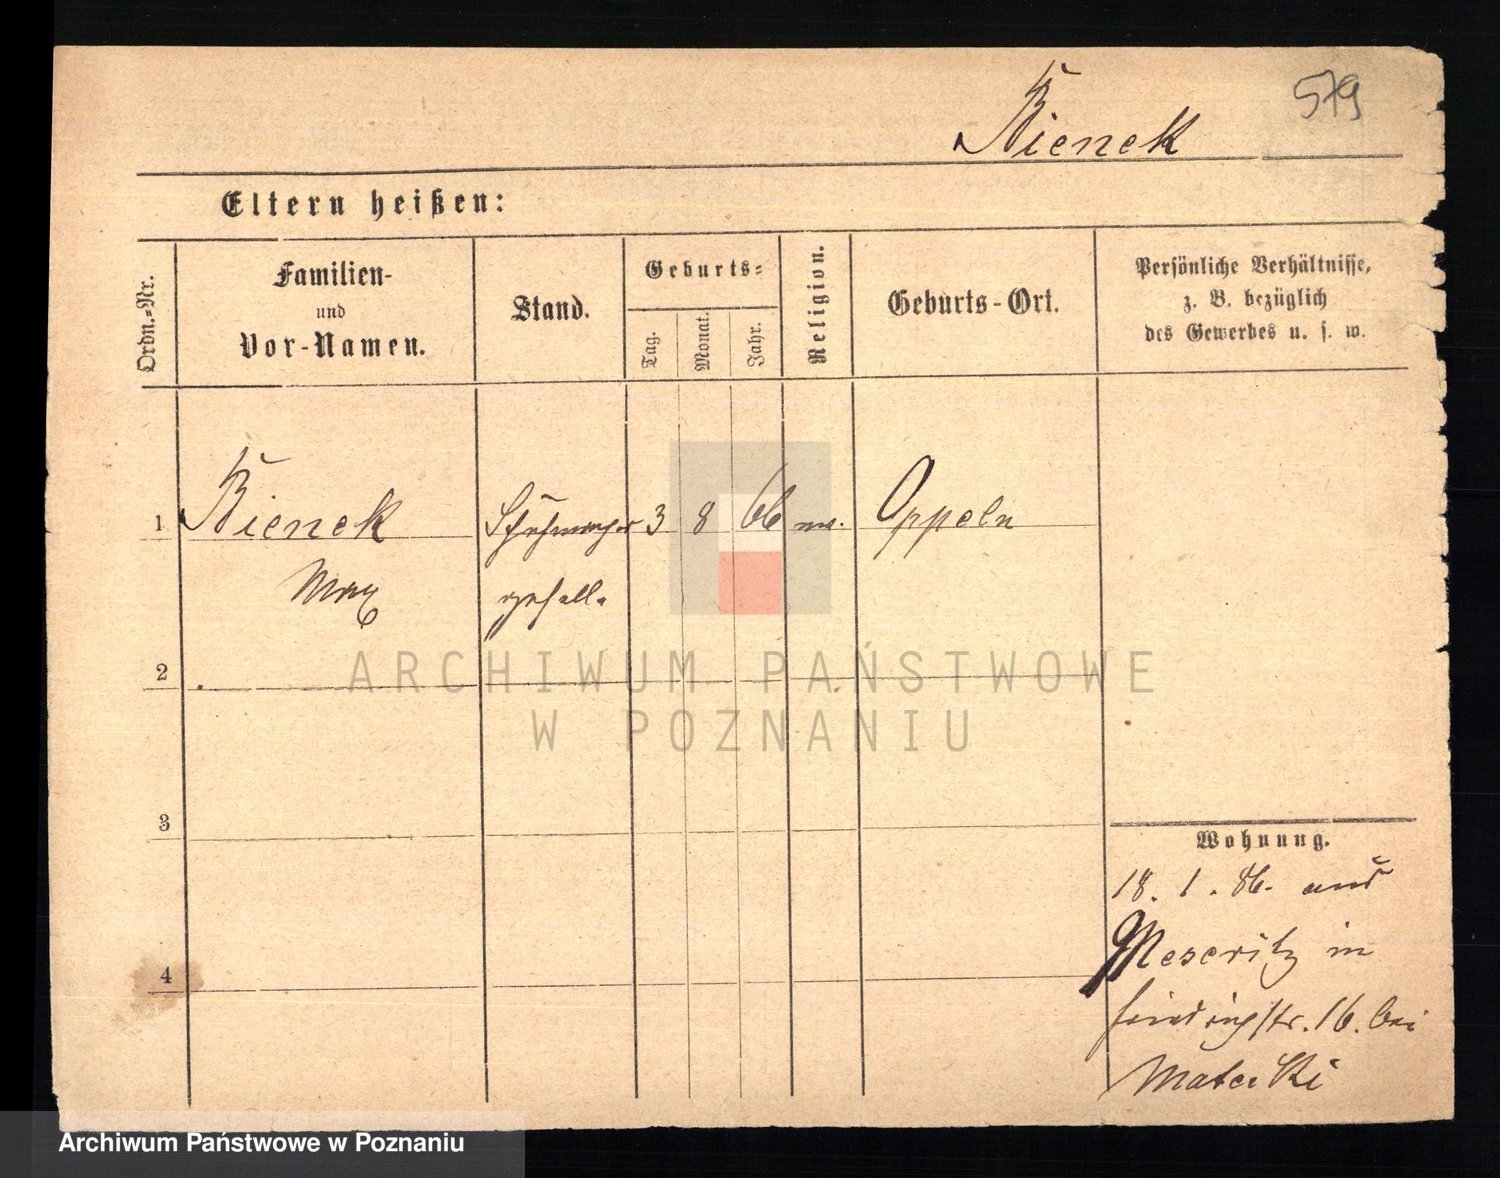 579
Bienek
Eltern heißen:
Ordn.-Nr.
Familien-
und
Vor-Namen.
Stand.
Geburts-
Tag.
Monat.
Jahr.
Religion.
Geburts-Ort.
Persönliche Verhältnisse,
z. B. bezüglich
des Gewerbes u. s. w.
1 Bienek Schuhmacher 3 8 66 Oppeln
Max gesell.
2
3
4
Wohnung.
18. 1. 86. aus
Meseritz in
Friedrichstr. 16. bei
Matecki
ARCHIWUM PAŃSTWOWE
W POZNANIU
Archiwum Państwowe w Poznaniu